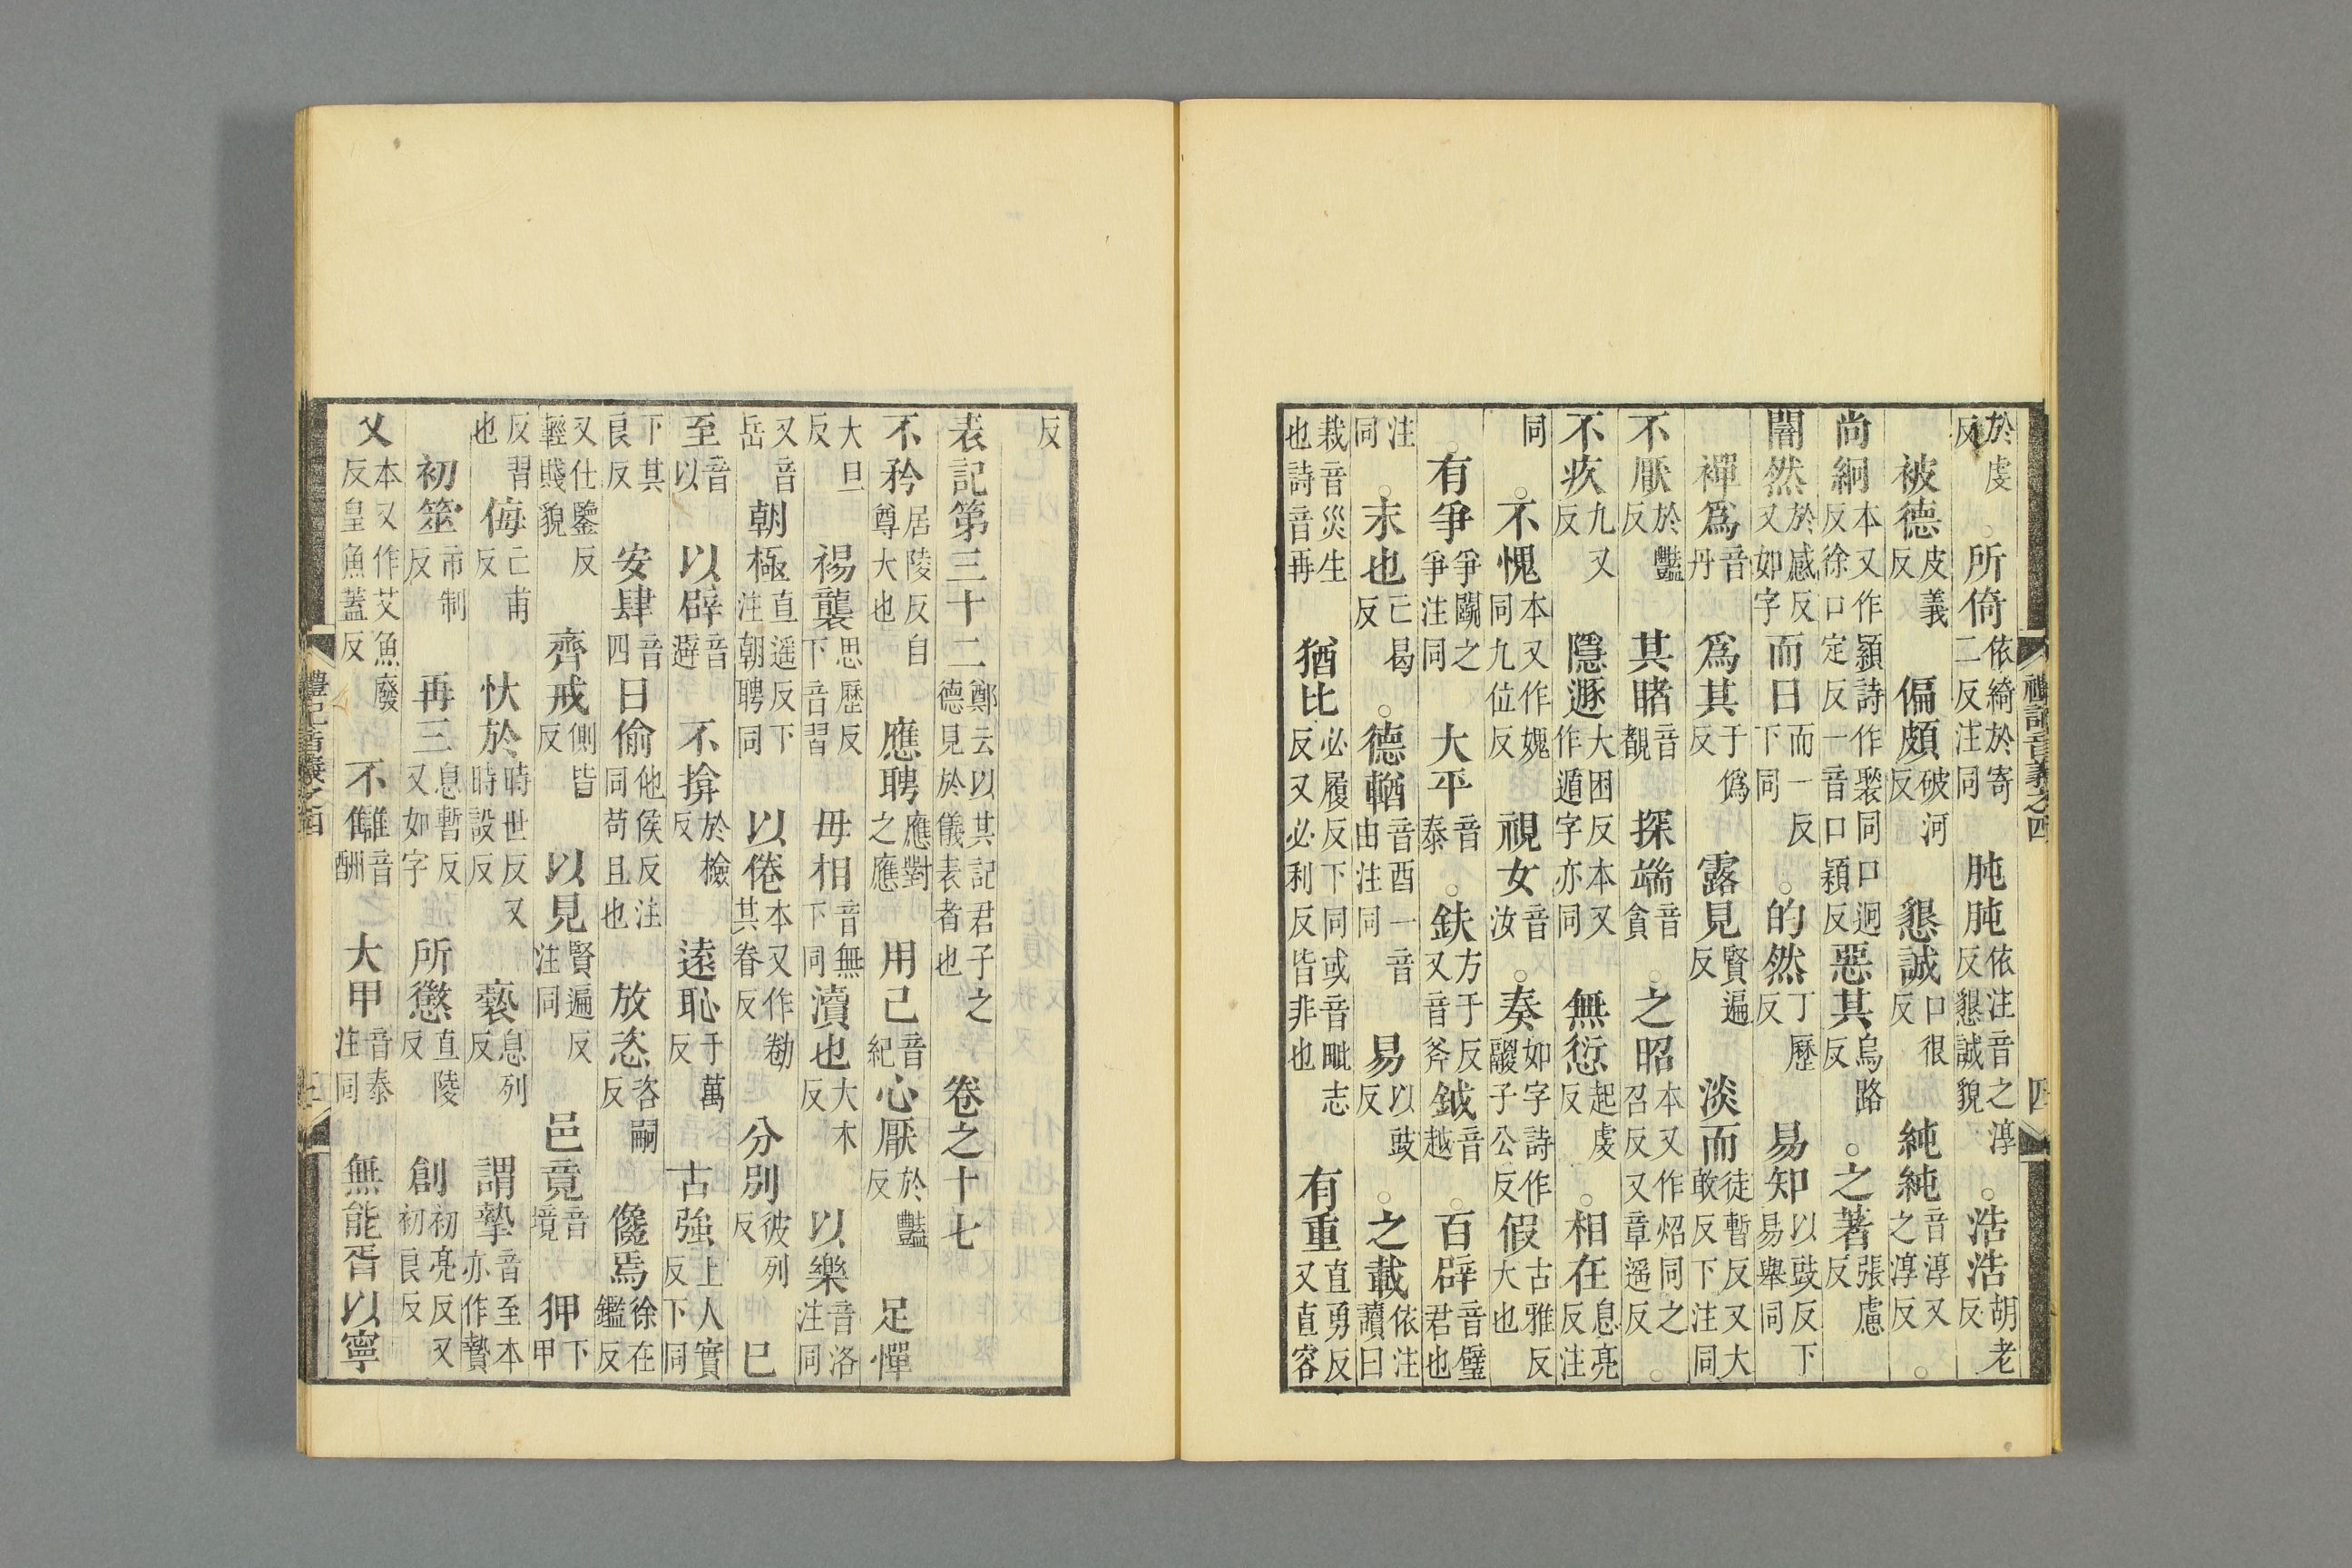 禮記音義之四 四
於虔反○所倚依綺於寄二反注同肫肫依注音之淳反懇誠貌○浩浩胡老反
被德皮義反偏頗破河反懇誠口很反純純音淳又之淳反○
尚絅本又作顈詩作褧同口迥反徐口定反一音口穎反惡其烏路反○之著張慮反
闇然於感反又如字而日而一反下同○的然丁歷反易知以豉反下易舉同
襌爲音丹爲其于僞反露見賢遍反淡而徒暫反又大敢反下注同
不厭於豔反其睹音覩探端音貪○之昭本又作炤同之召反又章遥反○
不疚九又反隱遯大困反本又作遁字亦同無愆起虔反○相在息亮反注
同○不愧本又作媿同九位反視女音汝○奏如字詩作鬷子公反假古雅反大也
○有爭爭鬭之爭注同大平音泰○鈇方于反又音斧鉞音越○百辟音璧君也
注同○末也亡曷反○德輶音酉一音由注同易以豉反○之載依注讀曰
栽音災生也詩音再猶比必履反下同或音毗志反又必利反皆非也有重直勇反又直容
反
表記第三十二鄭云以其記君子之德見於儀表者也卷之十七
不矜居陵反自尊大也應聘應對之應用己音紀心厭於豔反足憚
大旦反裼襲思歷反下音習毋相音無下同瀆也大木反以樂音洛注同
又音岳朝極直遥反下注朝聘同以倦本又作勌其眷反分別彼列反巳
至音以以辟音避不揜於檢反遠恥于萬反古強上人實反下同
下其良反安肆音四日偷他侯反注同苟且也放恣咨嗣反儳焉徐在鑑反
又仕鑒反輕賤貌齊戒側皆反以見賢遍反注同邑竟音境狎下甲
反習也侮亡甫反忕於時世反又時設反褻息列反謂摯音至本亦作贄
初筮市制反再三息暫反又如字所懲直陵反創初亮反又初良反
乂本又作艾魚廢反皇魚蓋反不讎音酬大甲音泰注同無能胥以寧